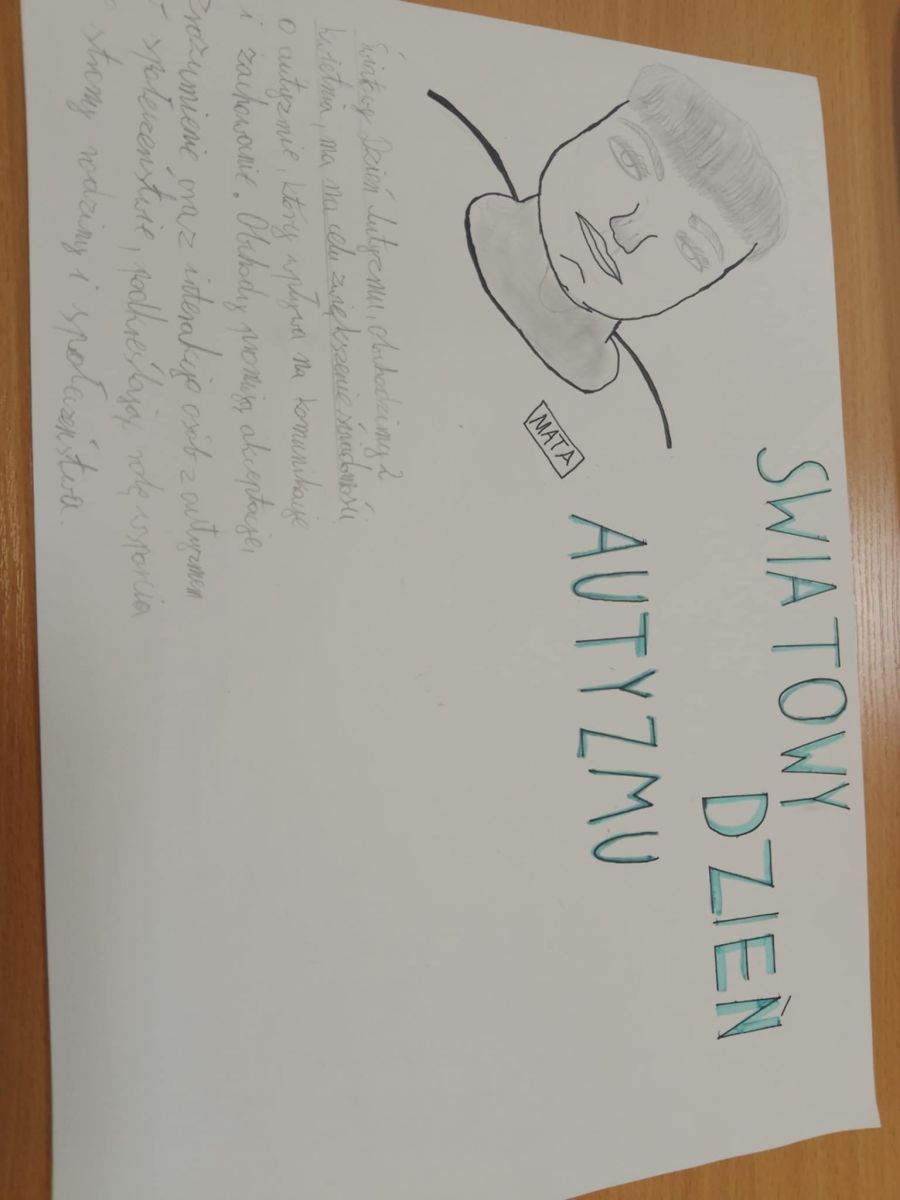 SWIATOWY
DZIEŃ
AUTYZMU
MATA
Światowy Dzień Autyzmu, obchodzimy 2
kwietnia, ma na celu zwiększenie świadomości
o autyzmie, który wpływa na komunikację
i zachowanie. Obchody promują akceptację,
zrozumienie oraz interakcję osób z autyzmem
społeczeństwie, podkreślając rolę wsparcia
strony rodziny i społeczeństwa.